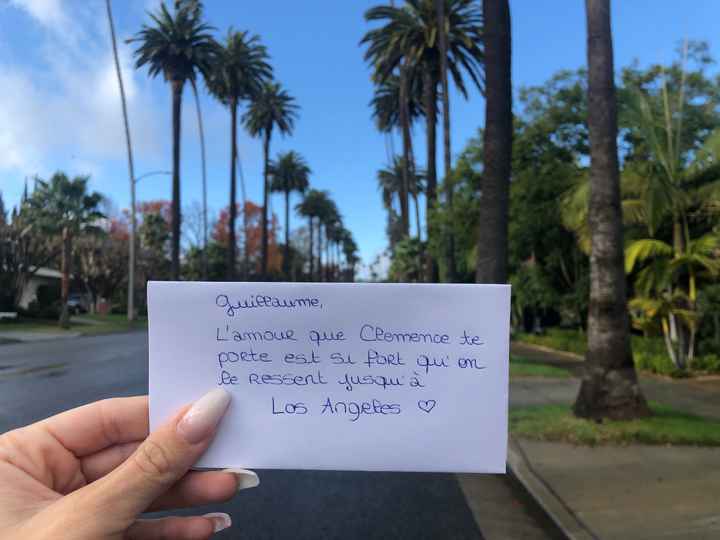 Guillaume,
L'amour que Clemence te
porte est si fort qu'on
le ressent jusqu'à
Los Angeles ♡